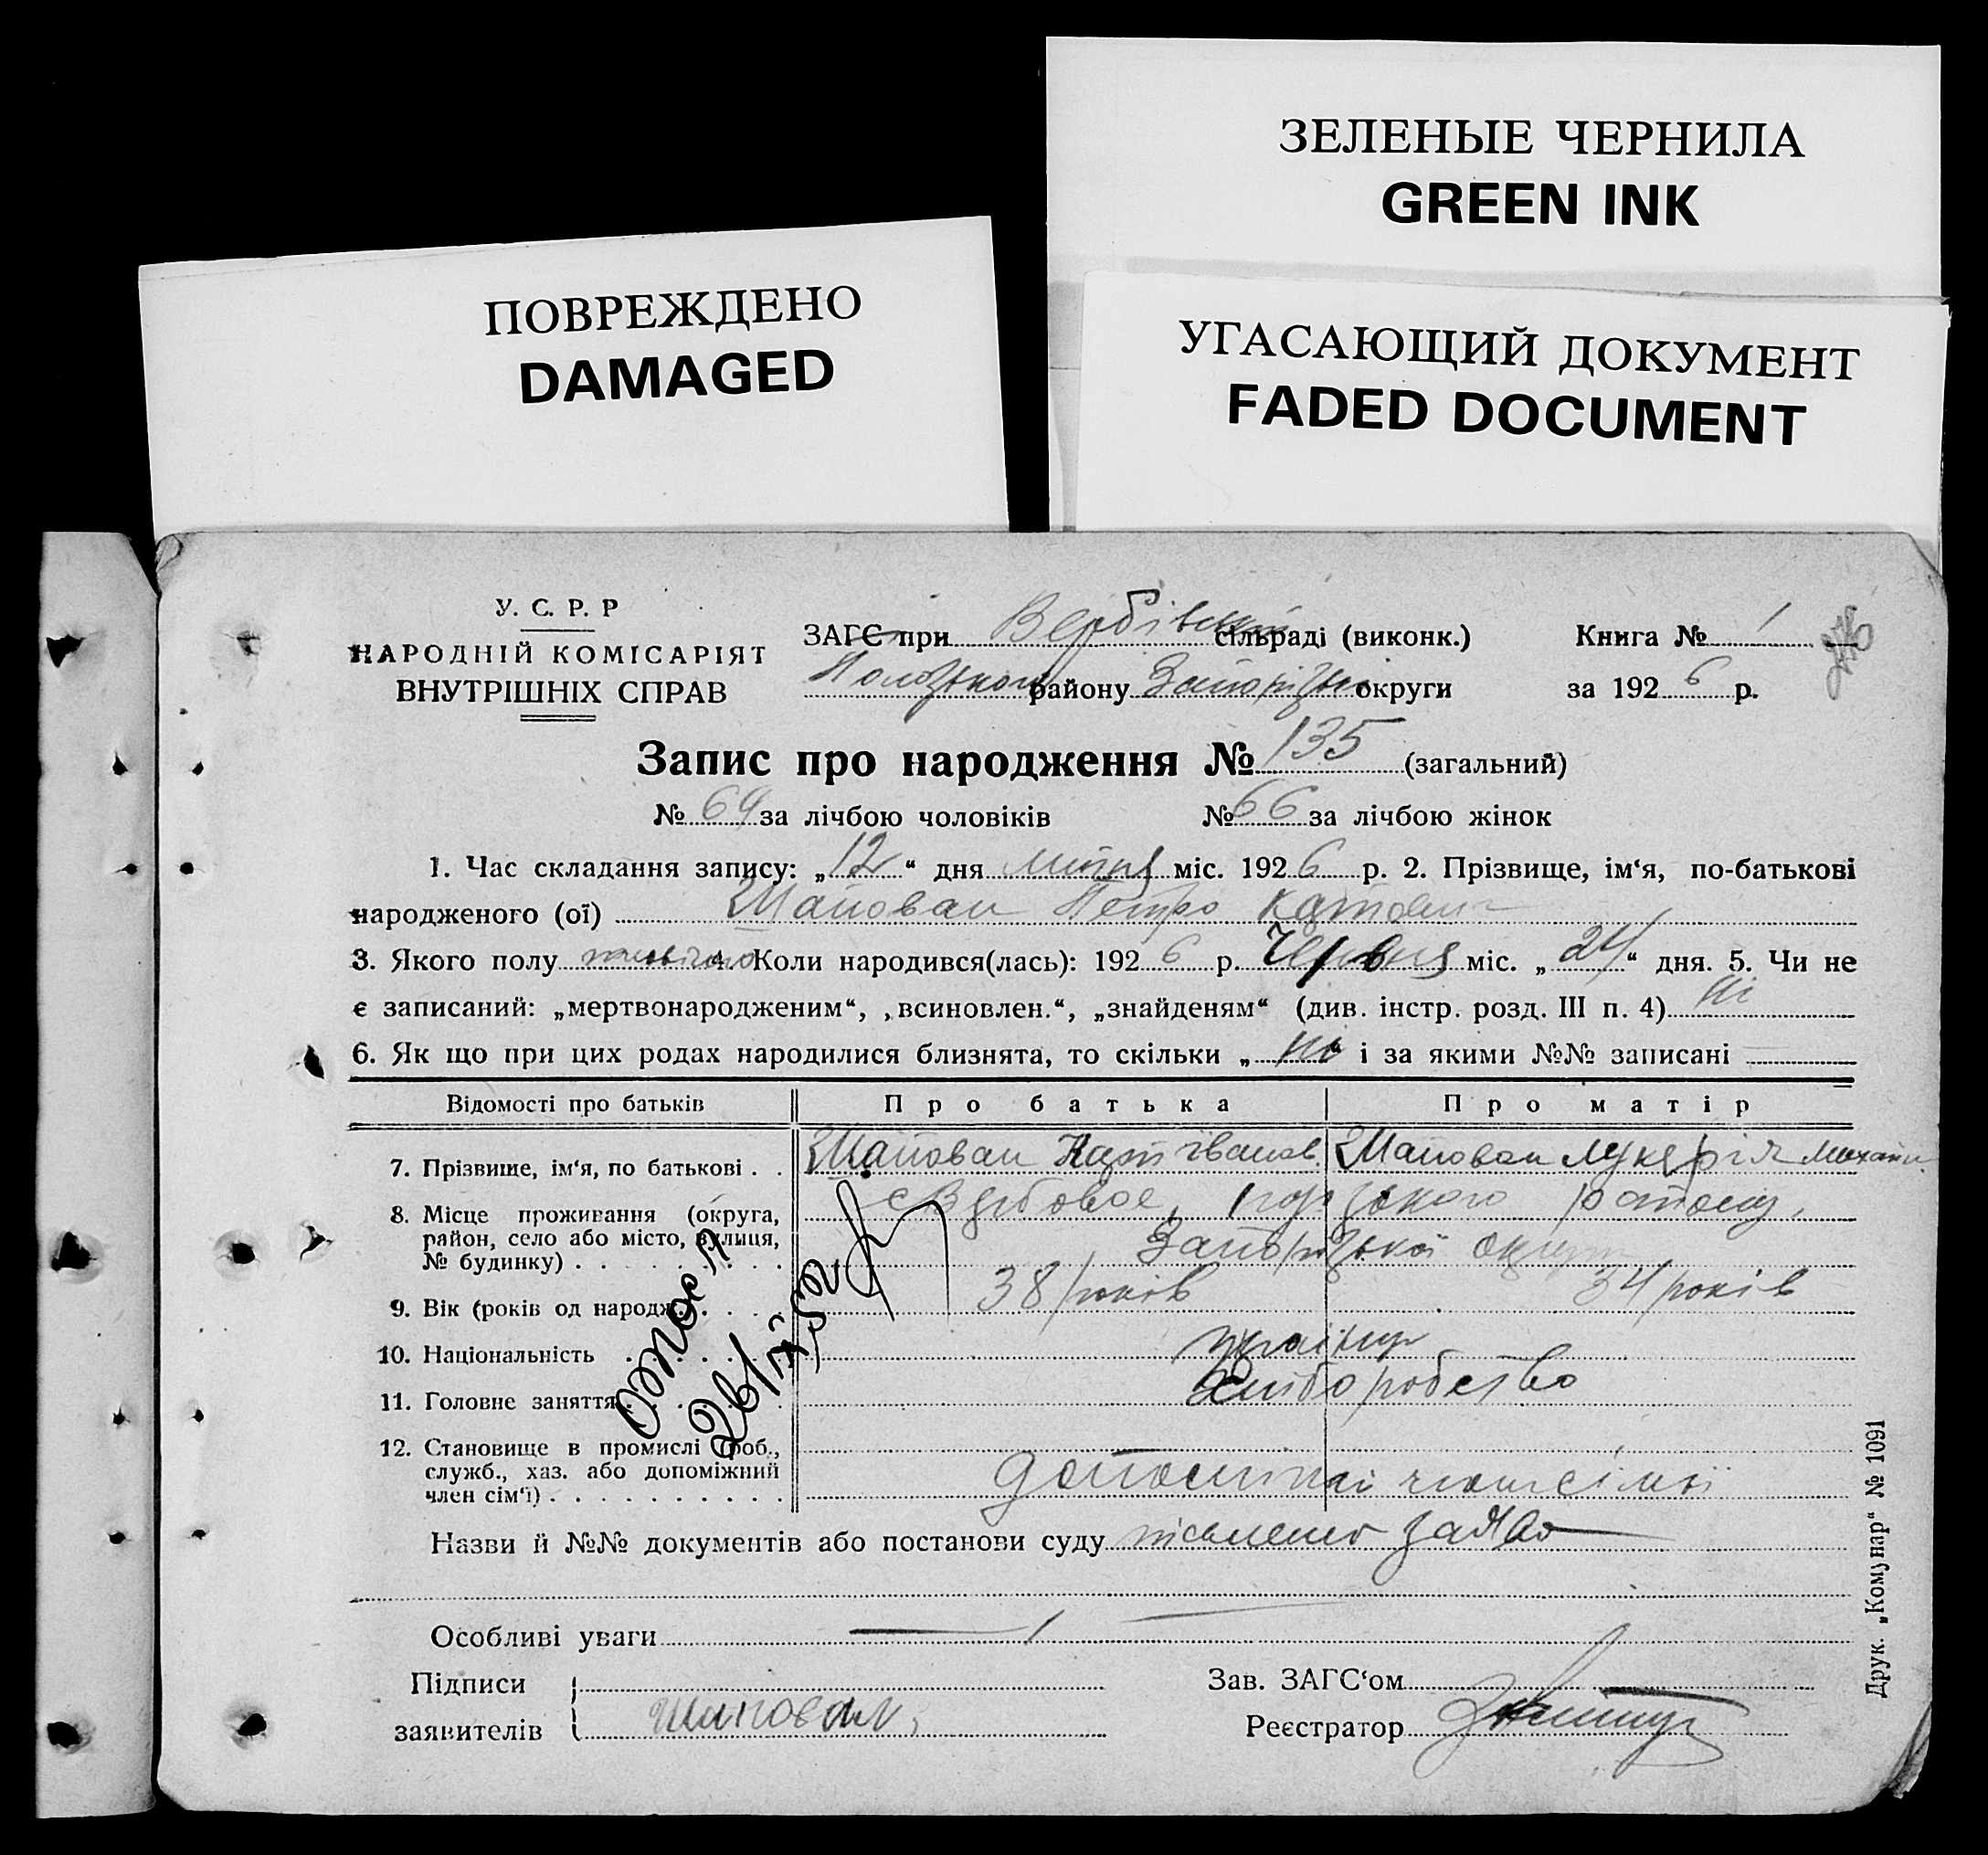 ЗЕЛЕНЫЕ ЧЕРНИЛА
GREEN INK
ПОВРЕЖДЕНО
DAMAGED
УГАСАЮЩИЙ ДОКУМЕНТ
FADED DOCUMENT
У. С. Р. Р
НАРОДНІЙ КОМІСАРІЯТ
ВНУТРІШНІХ СПРАВ
ЗАГС при Вербівській сільраді (виконк.)
району Запорізької округи
Книга № 1
за 1926 р.
Запис про народження № 135 (загальний)
№ 69 за лічбою чоловіків № 66 за лічбою жінок
1. Час складання запису: „12“ дня липня міс. 1926 р. 2. Прізвище, ім‘я, по-батькові
народженого (ої) Шаповал Петро
3. Якого полу чоловічого 4. Коли народився(лась): 1926 р. Червня міс. „24“ дня. 5. Чи не
є записаний: „мертвонародженим“, „всиновлен.“, „знайденям“ (див. інстр. розд. III п. 4) ні
6. Як що при цих родах народилися близнята, то скільки „ні“ і за якими №№ записані
Відомості про батьків Про батька Про матір
7. Прізвище, ім‘я, по батькові . . Шаповал Іванов. Шаповал Лукерія Михайл.
8. Місце проживання (округа, район, село або місто, вулиця, № будинку) . . . . . . . . . с Вербовое, району,
Запорізької округи
9. Вік (років од народж. . . . . 38 років 34 років
10. Національність . . . . . . українці
11. Головне заняття . . . . . хліборобство
12. Становище в промислі (роб., служб., хаз. або допоміжний член сім‘ї) . . . . . . . . . . допоміжні сімьї
Назви й №№ документів або постанови суду заява
Особливі уваги
Підписи
заявителів Шаповал
Зав. ЗАГС‘ом
Реєстратор
Друк. „Комунар“ № 1091